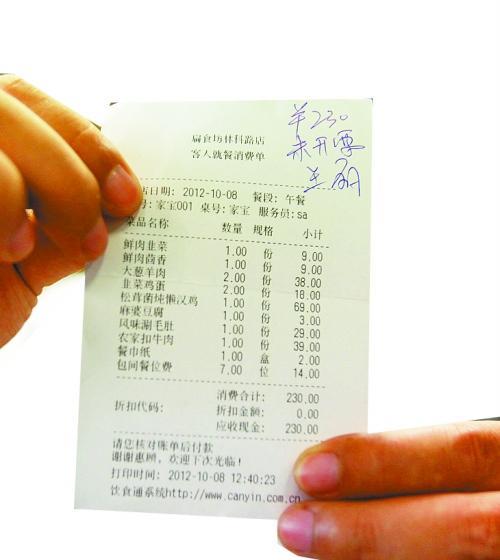 扁食坊林科路店
客人就餐消费单
¥230
未开票
店日期: 2012-10-08 餐段: 午餐
号:家宝001 桌号:家宝 服务员:sa
菜品名称 数量 规格 小计
鲜肉韭菜 1.00 份 9.00
鲜肉茴香 1.00 份 9.00
大葱羊肉 2.00 份 38.00
韭菜鸡蛋 2.00 份 18.00
松茸菌炖懒汉鸡 1.00 份 69.00
麻婆豆腐 1.00 份 3.00
风味涮毛肚 1.00 份 29.00
农家扣牛肉 1.00 份 39.00
餐巾纸 1.00 盒 2.00
包间餐位费 7.00 位 14.00
消费合计: 230.00
折扣代码: 折扣金额: 0.00
应收现金: 230.00
请您核对账单后付款
谢谢惠顾，欢迎下次光临!
打印时间: 2012-10-08 12:40:23
饮食通系统http://www.canyin.com.cn